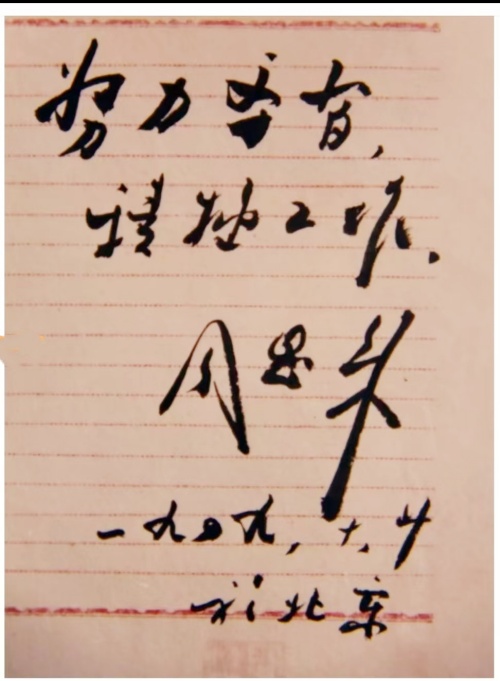 努力學習，
積極工作。
周恩来
一九四九，十，廿
於北京